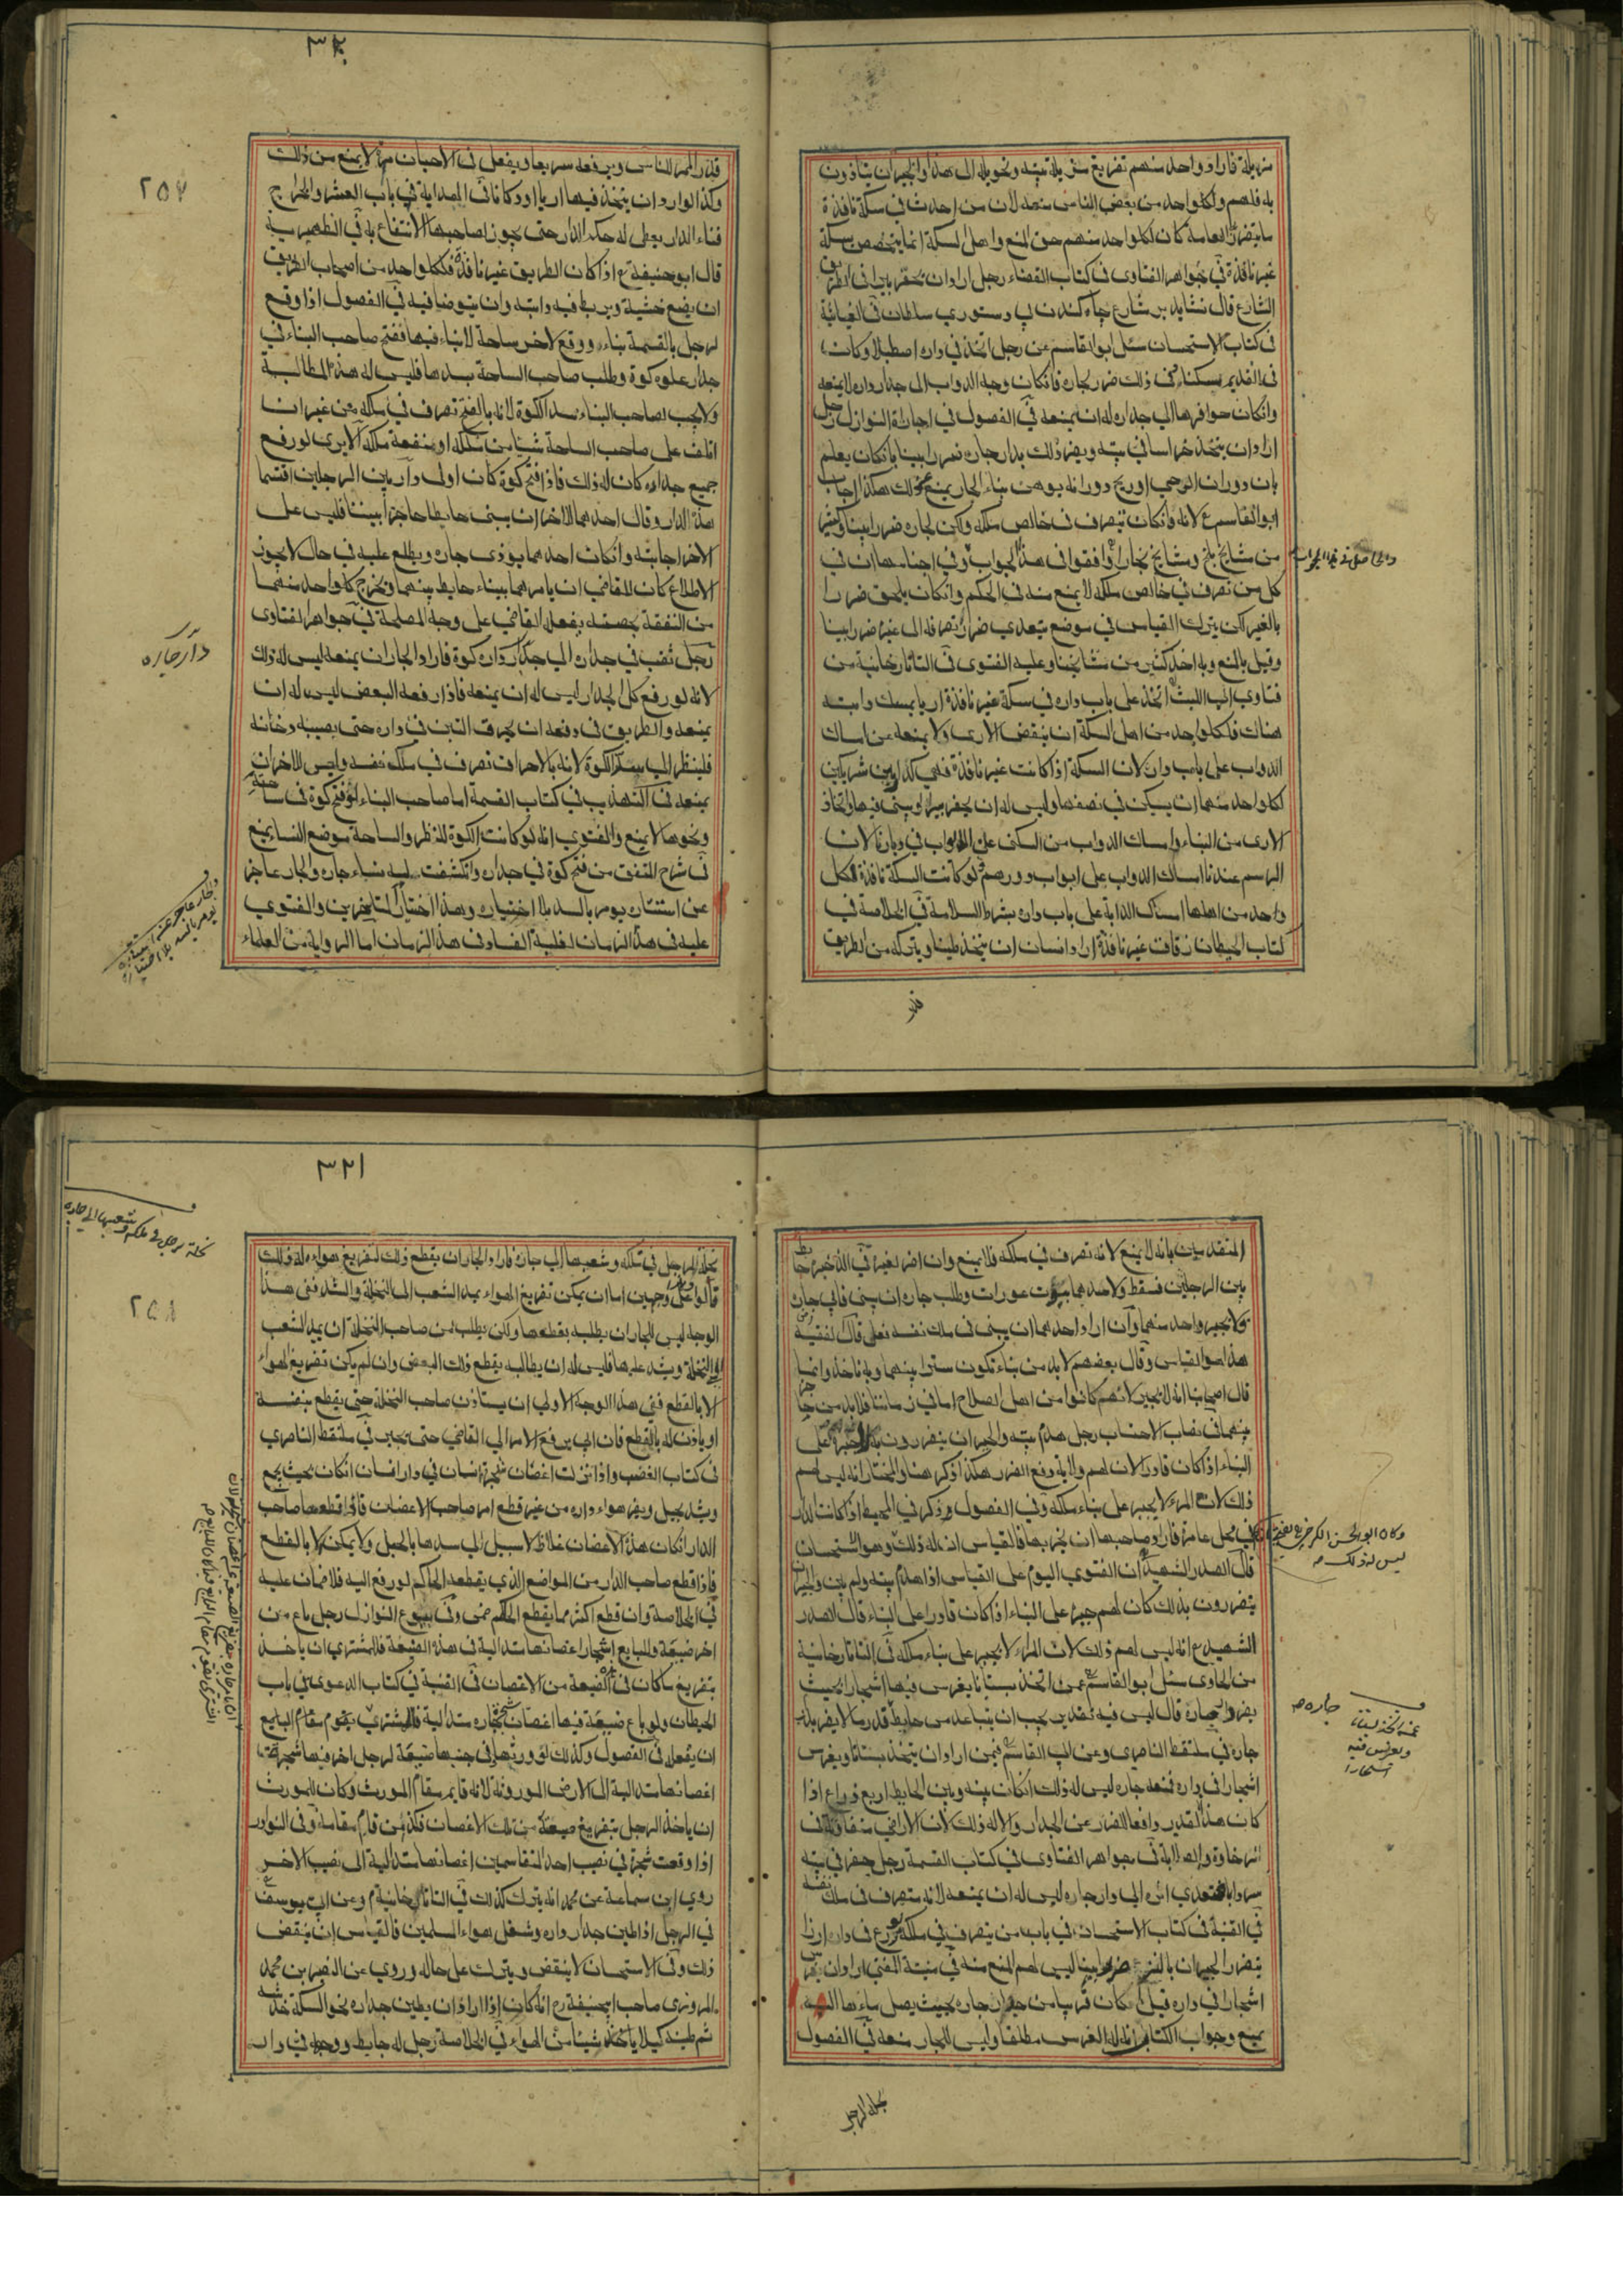 مزبلة فاراد واحد منهم تفريغ مزبلة بيته وتحويله الى هذا والجيران يتأذون
به فلهم ولكل واحد من بعض الناس منعه لان من احدث في سكة نافذة
ما يتضرر العامة كان لكل واحد منهم حق المنع واهل السكة انما يتخصص بسكة
غير نافذة في جواهر الفتاوى في كتاب القضاء رجل اراد ان يحفر بيرا في الطريق
الشارع قال نشايد بر شارع چاه كندن بى دستورى سلطان في الغياثية
في كتاب الاستحسان سئل ابو القاسم عن رجل اتخذ في داره اصطبلا وكانت
في القديم مسكنا وفي ذلك ضرر بجاره فان كان وجه الدواب الى جدار داره لا يمنعه
وان كان حوافرها الى جداره له ان يمنعه في الفصول في اجارة النوازل رجل
اراد ان يتخذ خراسا في بيته ويضر ذلك بدار جاره ضررا بينا بان كان يعلم
بان دوران الرحى او ريح دورانه يوهن بناء الجار يمنع عن ذلك هكذا اجاب
ابو القاسم لانه وان كان تصرف في خالص ملكه ولكن لجاره ضررا بينا وكثير
من مشايخ بلخ ومشايخ بخارا وافقوا في هذا الجواب وفي اجناسها ان في
كل من تصرف في خالص ملكه لا يمنع منه في الحكم وان كان يلحق ضررا
بالغير لكن يترك القياس في موضع يتعدى ضرر تصرفه الى غيره ضررا بينا
وقيل بالمنع وبه اخذ كثير من مشايخنا وعليه الفتوى في التاتارخانية من
فتاوى ابى الليث اتخذ على باب داره في سكة غير نافذة اريا يمسك دابته
هناك فلكل واحد من اهل السكة ان ينقض الارى ولا يمنعه عن امساك
الدواب على باب داره لان السكة اذا كانت غير نافذة فهى كدار بين شريكين
لكل واحد منهما ان يسكن في نصفها وليس له ان يحفر بيرا او يبنى فيها واتخاذ
الارى من البناء وامساك الدواب من السكنى على الابواب في ديارنا لان
الرسم عندنا امساك الدواب على ابواب دورهم ولو كانت السكة نافذة فلكل
واحد من اهلها امساك الدابة على باب داره بشرط السلامة في الخلاصة في
كتاب الحيطان زقاق غير نافذة اراد انسان ان يتخذ طينا ويتركه من الطريق
قدر
٣٢٠
٢٥٧
قدر الممر للناس ويرفعه سريعا ويفعل في الاحيان مرة لا يمنع من ذلك
وكذا لو اراد ان يتخذ فيها اريا او دكانا في الهداية في باب العشر والخراج
فناء الدار يعطى له حكم الدار حتى يجوز لصاحبها الانتفاع به في الظهيرية
قال ابو حنيفة اذا كان الطريق غير نافذة فلكل واحد من اصحاب الطريق
ان يضع خشبة ويربط فيه دابته وان يتوضا فيه في الفصول اذا وقع
لرجل بالقسمة بناء ووقع لاخر ساحة لا بناء فيها ففتح صاحب البناء في
جدار علوه كوة وطلب صاحب الساحة سدها فليس له هذه المطالبة
ولا يجب لصاحب البناء سد الكوة لانه بالفتح تصرف في ملكه من غير ان
اتلف على صاحب الساحة شيئا من ملكه او منفعة ملكه الا يرى لو رفع
جميع جداره كان له ذلك فاذا فتح كوة كان اولى دار بين الرجلين اقتسما
هذه الدار وقال احدهما للاخر ان يبنى حايطا حاجزا بيننا فليس على
الاخر اجابته وان كان احدهما يوذى جاره ويطلع عليه في حال لا يجوز
الاطلاع كان للقاضى ان يامرهما ببناء حايط بينهما ويخرج كل واحد منهما
من النفقة بحصته يفعل القاضى على وجه المصلحة في جواهر الفتاوى
رجل ثقب في جداره الى جدار داره كوة فاراد الجار ان يمنعه ليس له ذلك
لانه لو رفع كل الجدار ليس له ان يمنعه فاذا رفعه البعض ليس له ان
يمنعه والطريق في دفعه ان يحرق التبن في داره حتى يصيبه دخانه
فلينظر الى سد الكوة لانه بالاحراق تصرف في ملك نفسه وليس للاخر ان
يمنعه في التهذيب في كتاب القسمة اما صاحب البناء لو فتح كوة في ساحته
ونحوها لا يمنع والفتوى انه لو كانت الكوة للنظر والساحة موضع النساء يمنع
في شرح المتفق من فتح كوة في جداره وانكشفت اليه نساء جاره والجار عاجز
عن استتاره يومر بالسد بلا اختياره وهذا اختيار المتاخرين والفتوى
عليه في هذا الزمان لغلبة الفساد في هذا الزمان اما الرواية من العلماء
دار جاره
وجار عاجز عن استتاره
يومر بالسد بلا اختياره
المتقدمين بانه لا يمنع لانه تصرف في ملكه فلا يمنع وان اضر لغيره في الذخيرة حايط
بين الرجلين فسقط ولاحدهما بيوت عورات وطلب جاره ان يبنى فابى جاره
ولا يجبر واحد منهما وان اراد احدهما ان يبنى في ملك نفسه فعل قال الفقيه
هذا هو القياس وقال بعضهم لا بد من بناء تكون سترا بينهما وبه ناخذ وانما
قال اصحابنا انه لا يجبر لانهم كانوا من اهل الصلاح اما في زماننا فلا بد من حاجز
بينهما في نصاب الاحتساب رجل هدم بيته والجيران يتضررون به لهم جبره على
البناء اذا كان قادرا لان لهم ولاية دفع الضرر هكذا ذكر هنا والمختار انه ليس لهم
ذلك لان المرء لا يجبر على بناء ملكه وفي الفصول وذكر في المحيط اذا كانت الدار
في محل عامرة فاراد صاحبها ان يخربها فالقياس ان له ذلك وهو استحسان
قال الصدر الشهيد ان الفتوى اليوم على القياس اذا هدم بيته ولم يبن والجيران
يتضررون بذلك كان لهم جبره على البناء اذا كان قادرا على البناء قال الصدر
الشهيد انه ليس لهم ذلك لان المراد لا يجبر على بناء ملكه في التاتارخانية
من الحاوى سئل ابو القاسم عمن اتخذ بستانا يغرس فيها اشجارا بحيث
يضر بجاره قال ليس فيه تقدير يجب ان يتباعد من حايط قدر ما لا يضر بدار
جاره في ملتقط الناصرى وعن ابى القاسم فيمن اراد ان يتخذ بستانا ويغرس
اشجارا في داره فمنعه جاره ليس له ذلك ان كان بينه وبين الحايط اربع ذراع اذا
كان هذا القدر دافعا للضرر عن الجدار والا له ذلك لان الاراضى متفاوتة في
الرخاوة والصلابة في جواهر الفتاوى في كتاب القسمة رجل حفر في بيته
سردابا فتعدى اثره الى دار جاره ليس له ان يمنعه لانه متصرف في ملك نفسه
في القنية في كتاب الاستحسان في باب من يتصرف في ملكه زرع في داره ارزا
يتضرر الجيران بالنز ضررا بينا ليس لهم المنع منه في منية المفتى اراد ان يغرس
اشجارا في داره قيل ان كان قريبا من جدار جاره بحيث يصل
يمنع وجواب الكتاب ان له الغرس مطلقا وليس للجار منعه في الفصول
وكان ابو الحسن الكرخى
ليس له ذلك
جاره
عمن اتخذ بستانا
ويغرس فيه
اشجارا
نخلة لرجل
٣٢١
٢٥٨
نخلة لرجل في ملكه وشعبها الى جاره
نخلة لرجل في ملكه وشعبها الى جاره فاراد الجار ان يقطع ذلك لتفريغ هواءه له ذلك
قالوا على وجهين اما ان يمكن تفريغ الهواء بمد الشعب الى النخلة والشد ففى هذا
الوجه ليس للجار ان يطلبه بقطعها ولكن يطلب من صاحب النخلة ان يمد الشعب
الى النخلة ويشد عليها فليس له ان يطالبه بقطع ذلك البعض وان لم يكن تفريغ الهواء
الا بالقطع ففى هذا الوجه الاولى ان يستاذن صاحب النخلة حتى يقطع بنفسه
او ياذن له بالقطع فان ابى يرفع الامر الى القاضى حتى يجبره في ملتقط الناصرى
في كتاب الغصب واذا نزلت اغصان شجرة انسان في دار انسان ان كان بحيث يجمع
ويشد بحبل ويفرغ هواء داره من غير قطع امر صاحب الاغصان فان قطعها صاحب
الدار ان كان هذه الاغصان غلاظ لا سبيل الى سدها بالحبل ولا يمكن الا بالقطع
فاذا قطع صاحب الدار من المواضع الذى يقطعه الحاكم لو رفع اليه فلا ضمان عليه
في الخلاصة وان قطع اكثر مما يقطع الحاكم ضمن وفي بيوع النوازل رجل باع من
اخر ضيعة وللبايع اشجار اغصانها متدلية في هذه الضيعة فللمشترى ان ياخذ
بتفريغ ما كان في الضيعة من الاغصان في القنية في كتاب الدعوى في باب
الحيطان ولو باع ضيعة فيها اغصان شجرة جاره متدلية فالمشترى يقوم مقام البايع
ان يفعل في الفصول وكذلك لو ورثها وفي جنبها ضيعة لرجل اخر فيها شجرة
اغصانها متدلية الى الارض الموروثة لانه قايم مقام المورث وكان للمورث
ان ياخذ الرجل بتفريغ ضيعته من تلك الاغصان فكذا من قام مقامه وفي النوادر
اذا وقعت شجرة في نصيب احد المتقاسمين اغصانها متدلية الى نصيب الاخر
روى ابن سماعة عن محمد انه يترك كذلك في التاتارخانية وعن ابى يوسف
في الرجل اذا طين جدار داره وشغل هواء المسلمين فالقياس ان ينقض
ذلك وفي الاستحسان لا ينقض ويترك على حاله وروى عن النضر بن محمد
المروزى صاحب ابى حنيفة انه كان اذا اراد ان يطين جداره نحو السكة خدشه
ثم طينه كيلا ياخذ شيئا من الهواء في الخلاصة رجل له حايط ووجهه في دار